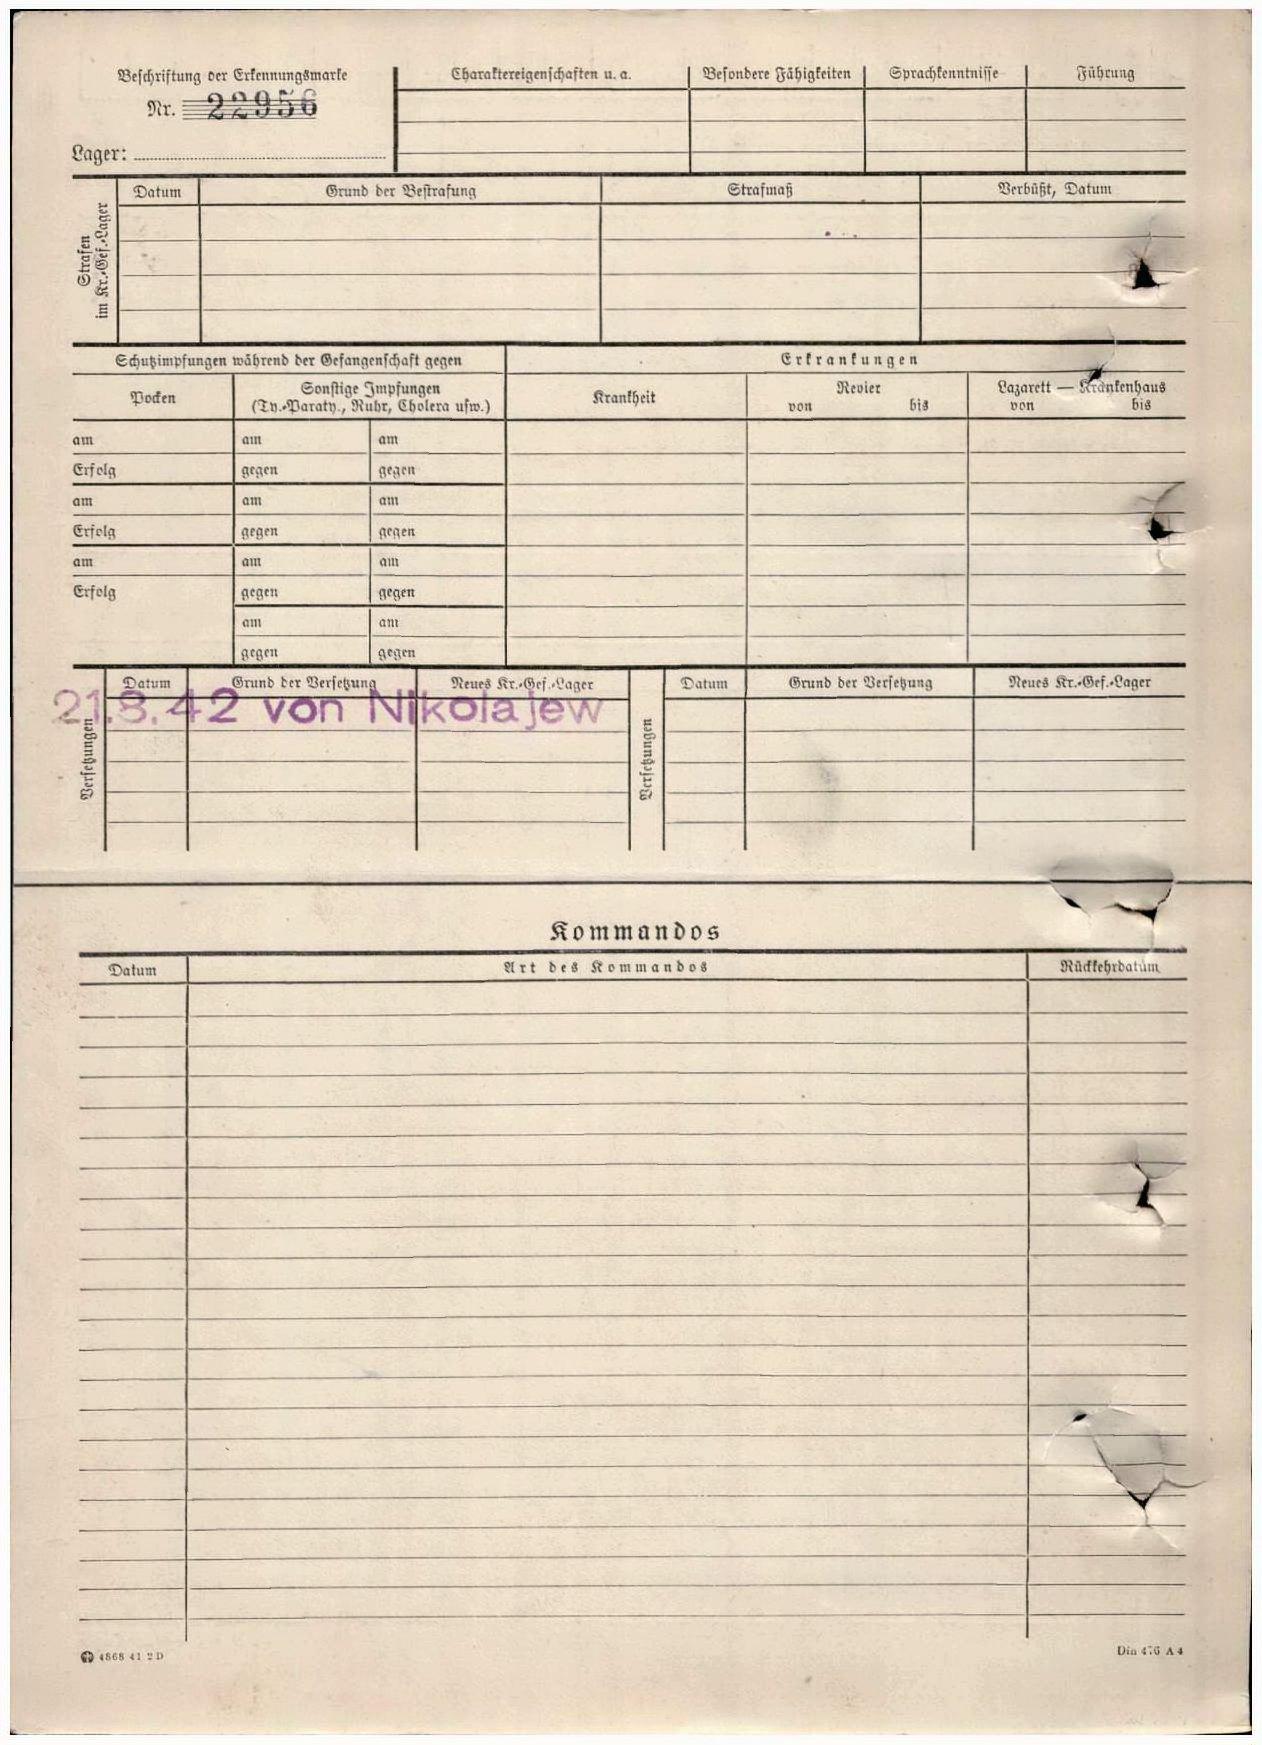 Beschriftung der Erkennungsmarke
Nr. 22956
Lager:
Charaktereigenschaften u. a.
Besondere Fähigkeiten
Sprachkenntnisse
Führung
Strafen
im Kr.-Gef.-Lager
Datum
Grund der Bestrafung
Strafmaß
Verbüßt, Datum
Schutzimpfungen während der Gefangenschaft gegen
Erkrankungen
Pocken
Sonstige Impfungen
(Ty.-Paraty., Ruhr, Cholera usw.)
Krankheit
Revier
von bis
Lazarett — Krankenhaus
von bis
am am am
Erfolg gegen gegen
am am am
Erfolg gegen gegen
am am am
Erfolg gegen gegen
am am
gegen gegen
Versetzungen
Datum Grund der Versetzung Neues Kr.-Gef.-Lager
21.8.42 von Nikolajew
Versetzungen
Datum Grund der Versetzung Neues Kr.-Gef.-Lager
Kommandos
Datum Art des Kommandos Rückkehrdatum
4868 41 2 D
Din 476 A 4